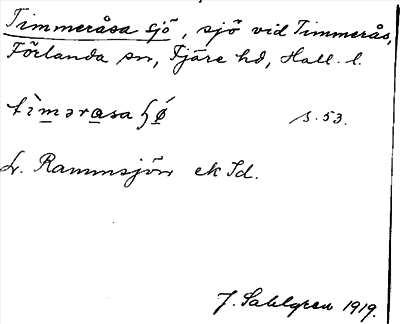 Timmeråsa sjö, sjö vid Timmerås,
Förlanda sn, Fjäre hd, Hall. l.
tìmərasa ʃǿ s. 53.
Lr. Rammsjön ek Id.
J. Sahlgren 1919.